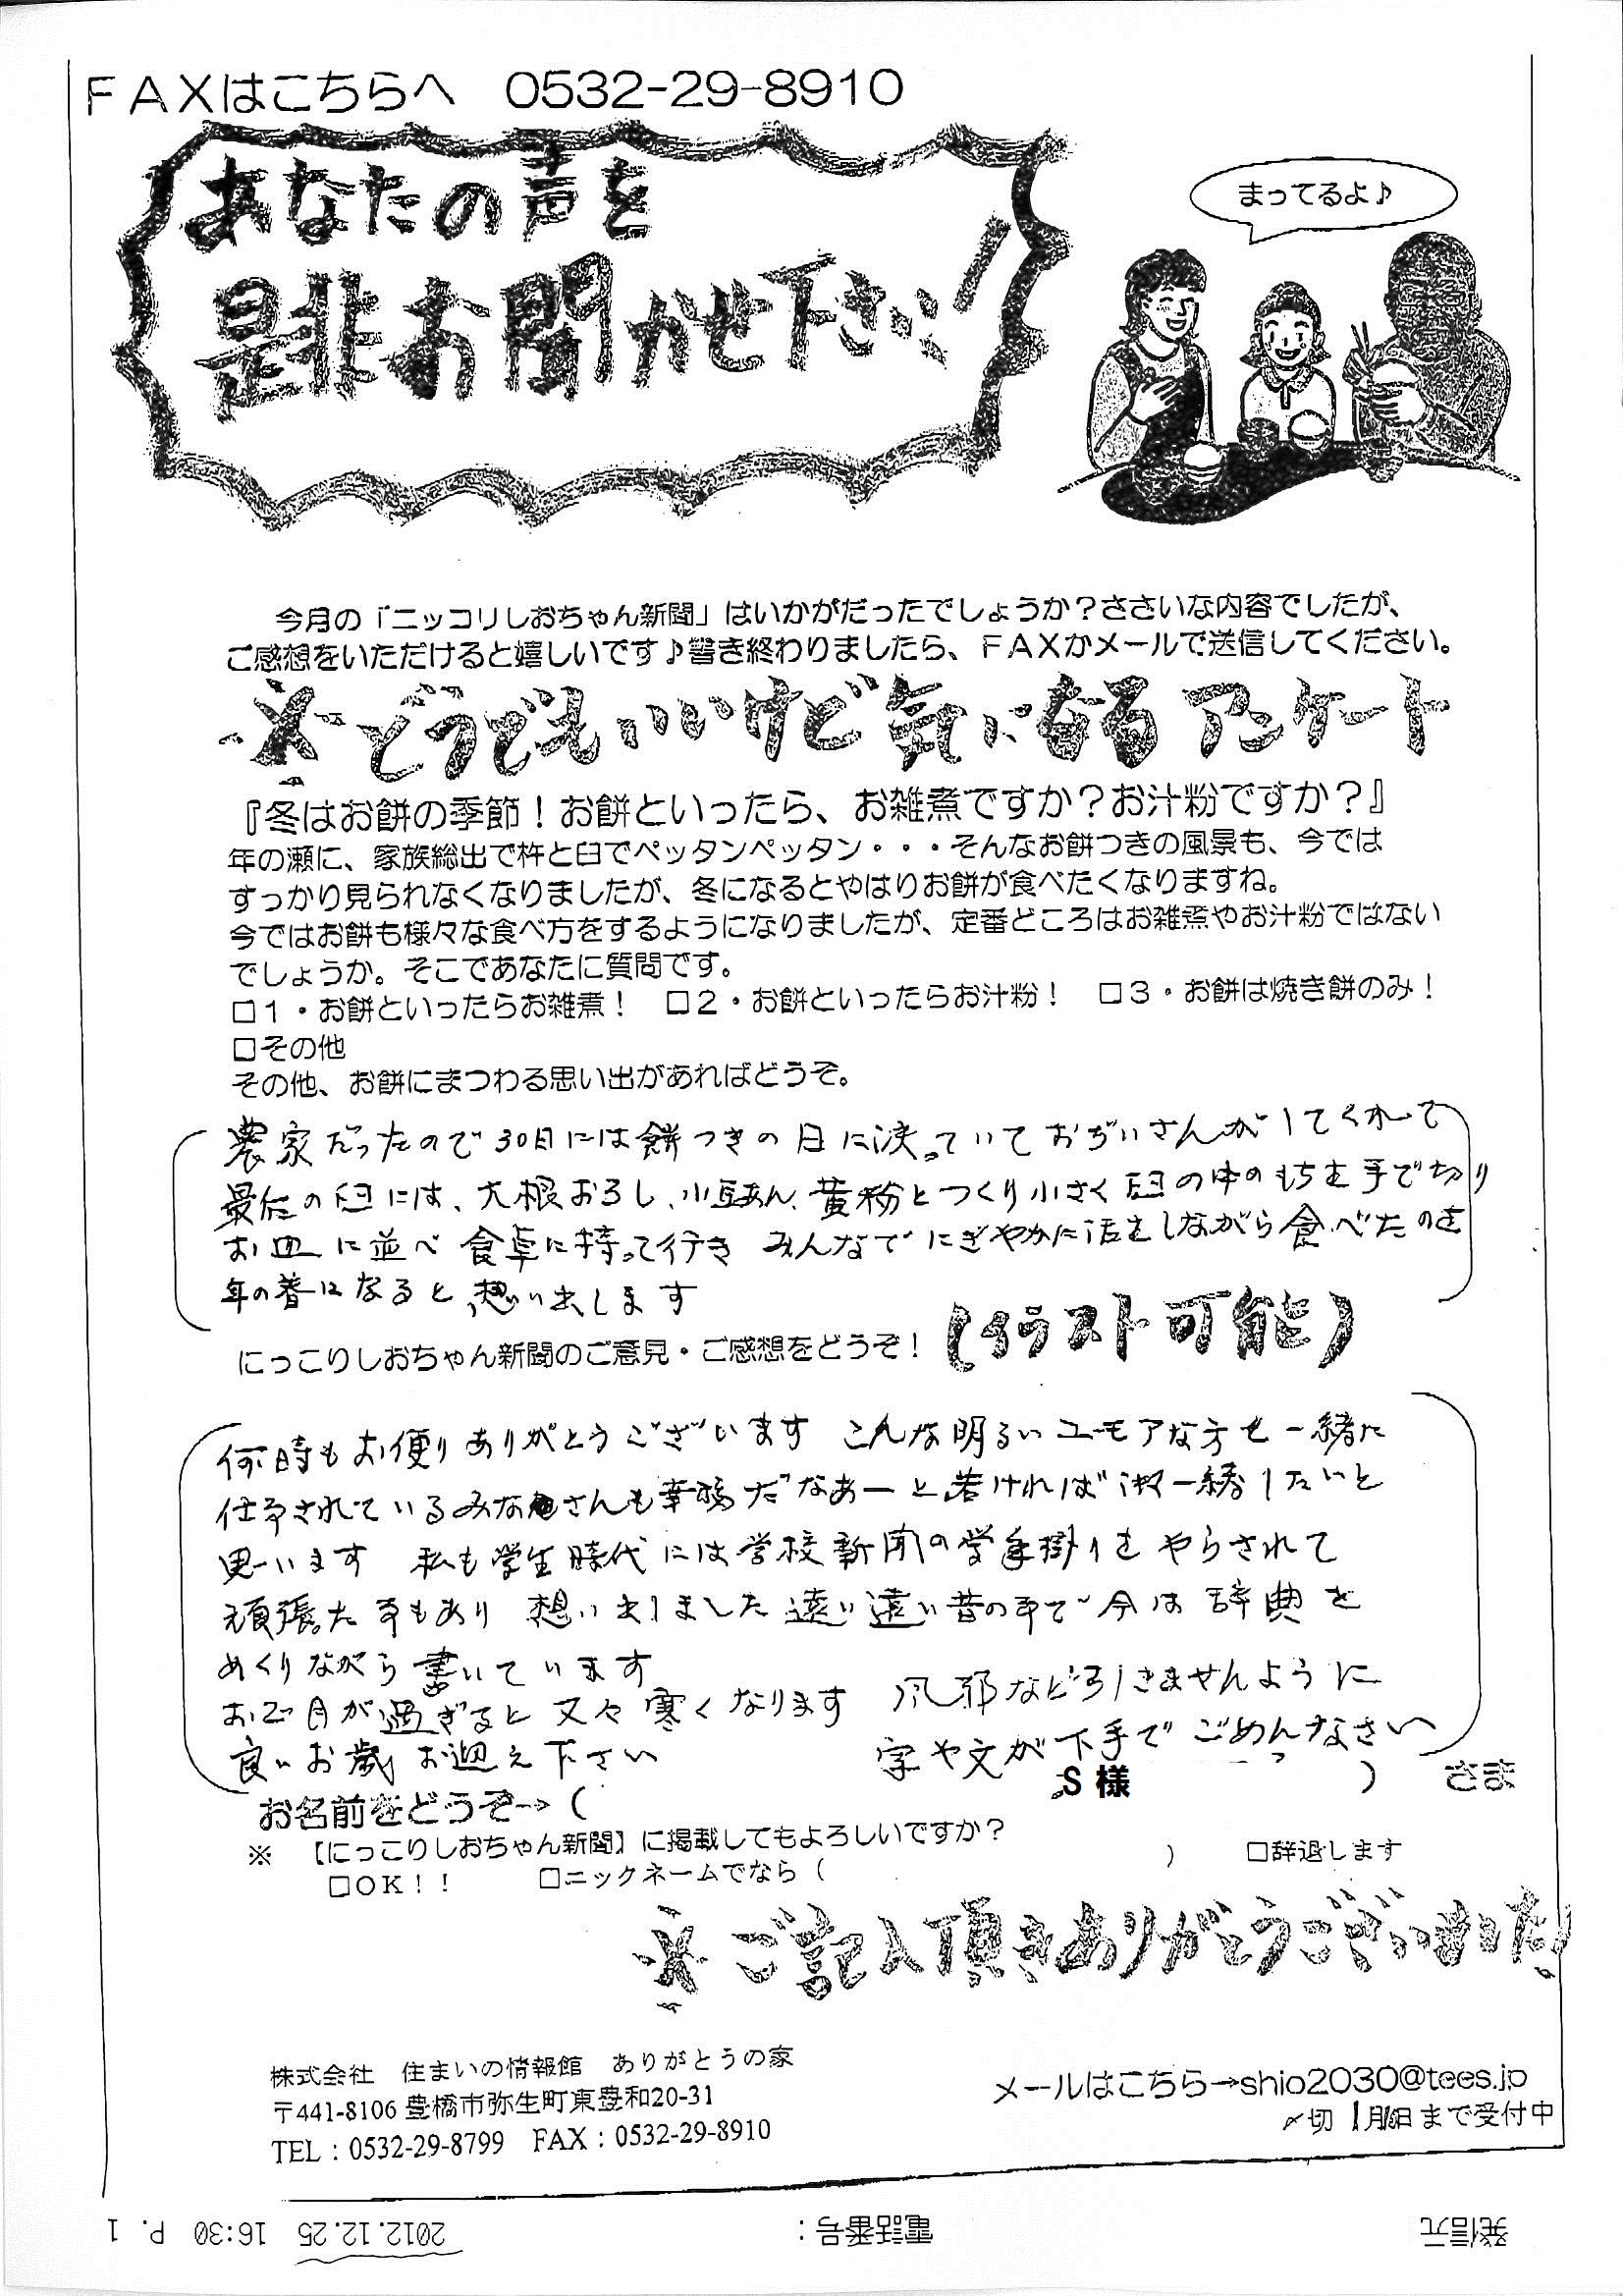 FAXはこちらへ　0532-29-8910
あなたの声を
是非お聞かせ下さい！
まってるよ♪
今月の「ニッコリしおちゃん新聞」はいかがだったでしょうか？ささいな内容でしたが、
ご感想をいただけると嬉しいです♪書き終わりましたら、FAXかメールで送信してください。
＊どうでもいいけど気になるアンケート
『冬はお餅の季節！お餅といったら、お雑煮ですか？お汁粉ですか？』
年の瀬に、家族総出で杵と臼でペッタンペッタン・・・そんなお餅つきの風景も、今では
すっかり見られなくなりましたが、冬になるとやはりお餅が食べたくなりますね。
今ではお餅も様々な食べ方をするようになりましたが、定番どころはお雑煮やお汁粉ではない
でしょうか。そこであなたに質問です。
□1・お餅といったらお雑煮！　□2・お餅といったらお汁粉！　□3・お餅は焼き餅のみ！
□その他
その他、お餅にまつわる思い出があればどうぞ。
農家だったので30日には餅つきの日に決っていておぢいさんがしてくれて
最后の臼には、大根おろし、小豆あん、黄粉とつくり小さく臼の中のもちを手で切り
お皿に並べ 食卓に持って行き みんなでにぎやかに話をしながら食べたのを
年の暮になると想い出します
にっこりしおちゃん新聞のご意見・ご感想をどうぞ！（イラスト可能）
何時もお便りありがとうございます こんな明るいユーモアな方と一緒に
仕事されているみなさんも幸福だなあーと若ければ 一緒したいと
思います 私も学生時代には学校新聞の学年掛りをやらされて
頑張った事もあり 想い出しました 遠い遠い昔の事で 今は 辞典を
めくりながら書いています
お正月が過ぎると又々寒くなります 風邪など引きませんように
良いお歳お迎え下さい 字や文が下手でごめんなさい
お名前をどうぞ→（ S様 ） さま
※ 【にっこりしおちゃん新聞】に掲載してもよろしいですか？
□OK！！ □ニックネームでなら（ ） □辞退します
＊ご記入頂きありがとうございました
株式会社　住まいの情報館　ありがとうの家
〒441-8106 豊橋市弥生町東豊和20-31
TEL：0532-29-8799　FAX：0532-29-8910
メールはこちら→shio2030@tees.jp
〆切 1月 日まで受付中
発信元 電話番号： 2012.12.25 16:30 P. 1